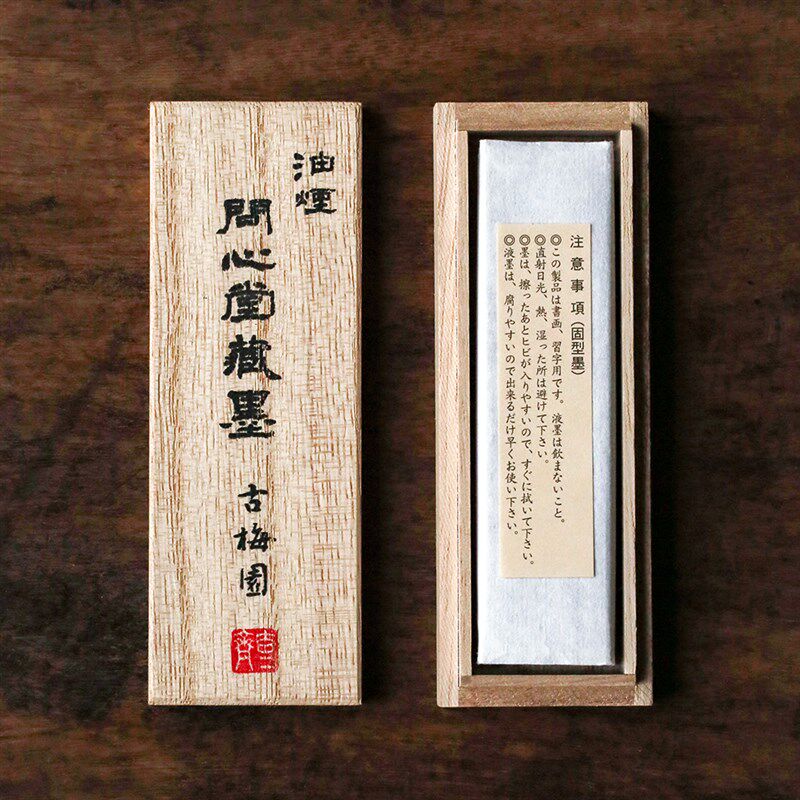 油煙
問心堂藏墨
古梅園
注意事項（固型墨）
◎この製品は書画、習字用です。液墨は飲まないこと。
◎直射日光、熱、湿った所は避けて下さい。
◎墨は、擦ったあとヒビが入りやすいので、すぐに拭いて下さい。
◎液墨は、腐りやすいので出来るだけ早くお使い下さい。